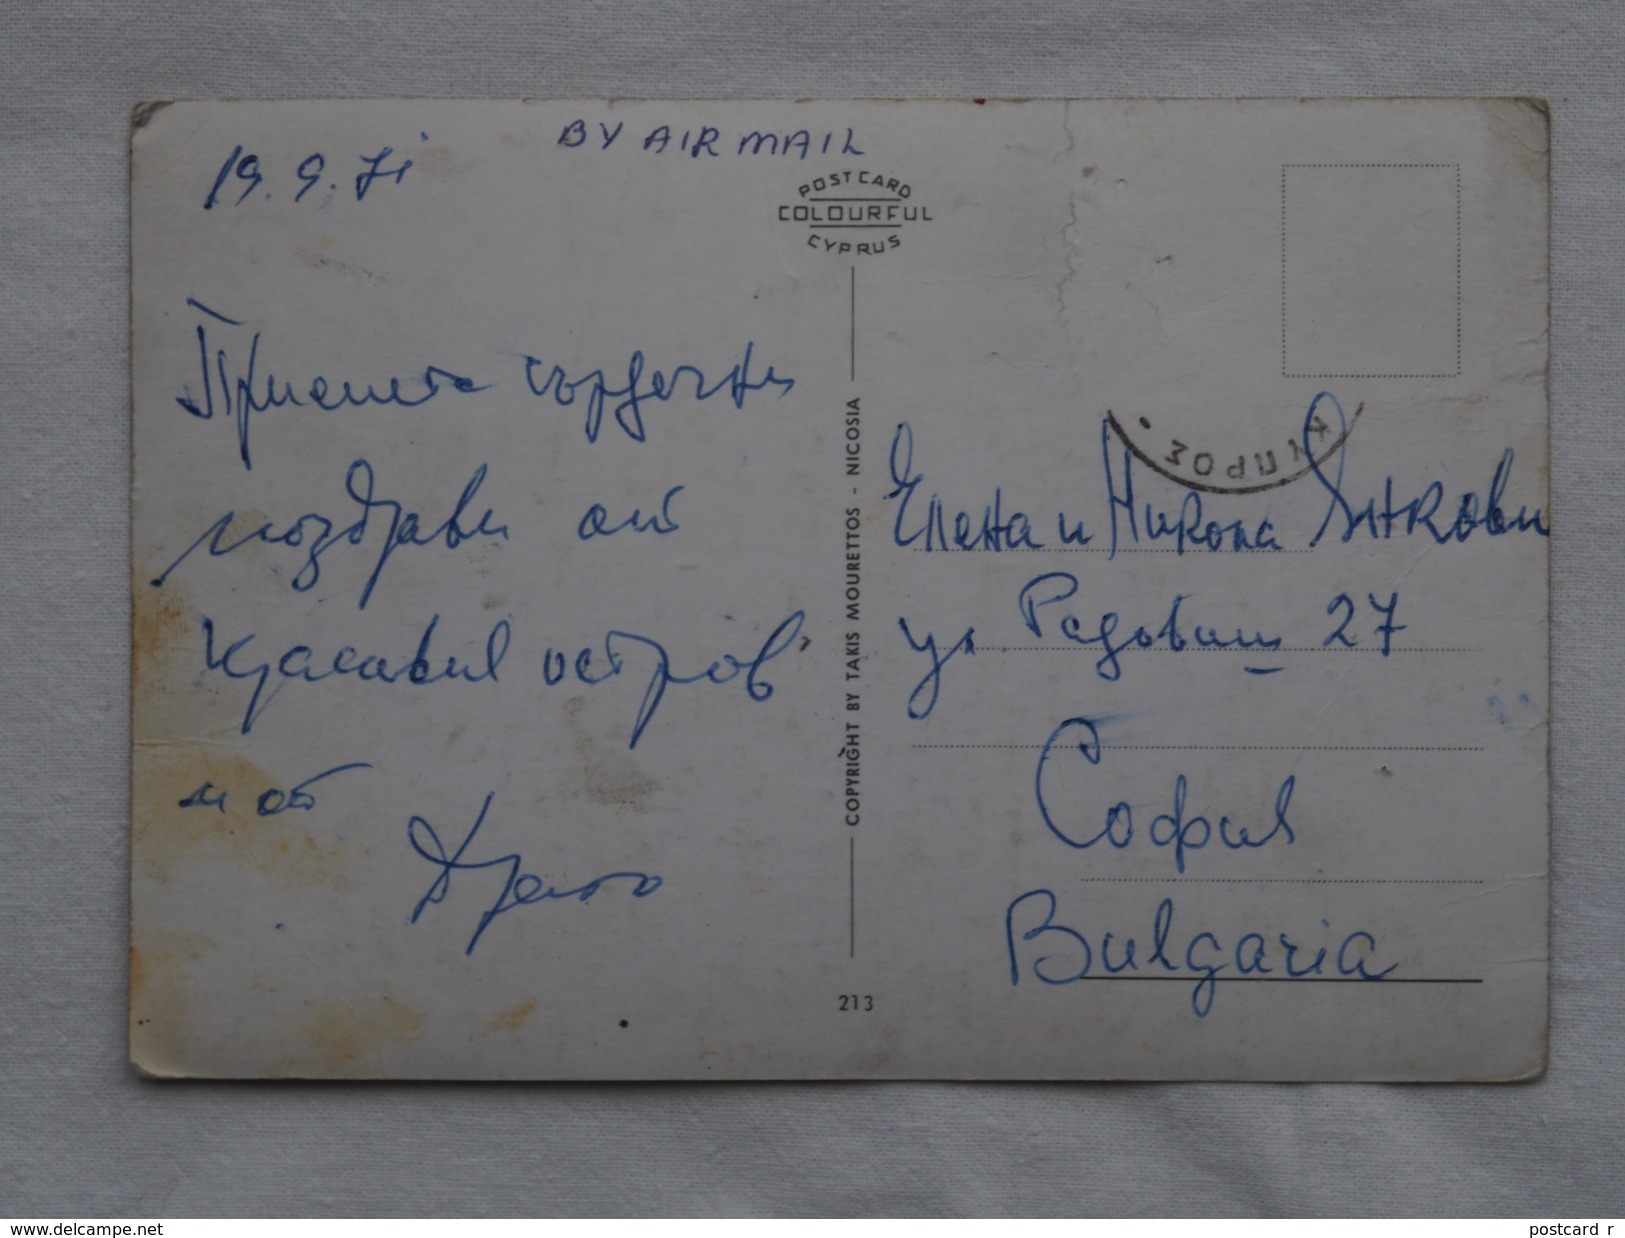 BY AIR MAIL
19.9.71
POSTCARD
COLOURFUL
CYPRUS
Приемете сърдечни
поздрави от
красивия остров
и от
COPYRIGHT BY TAKIS MOURETTOS - NICOSIA
213
ΚΥΠΡΟΣ
Елена и Никола Янкови
ул. Радовиш 27
София
Bulgaria
www.delcampe.net
postcard_r